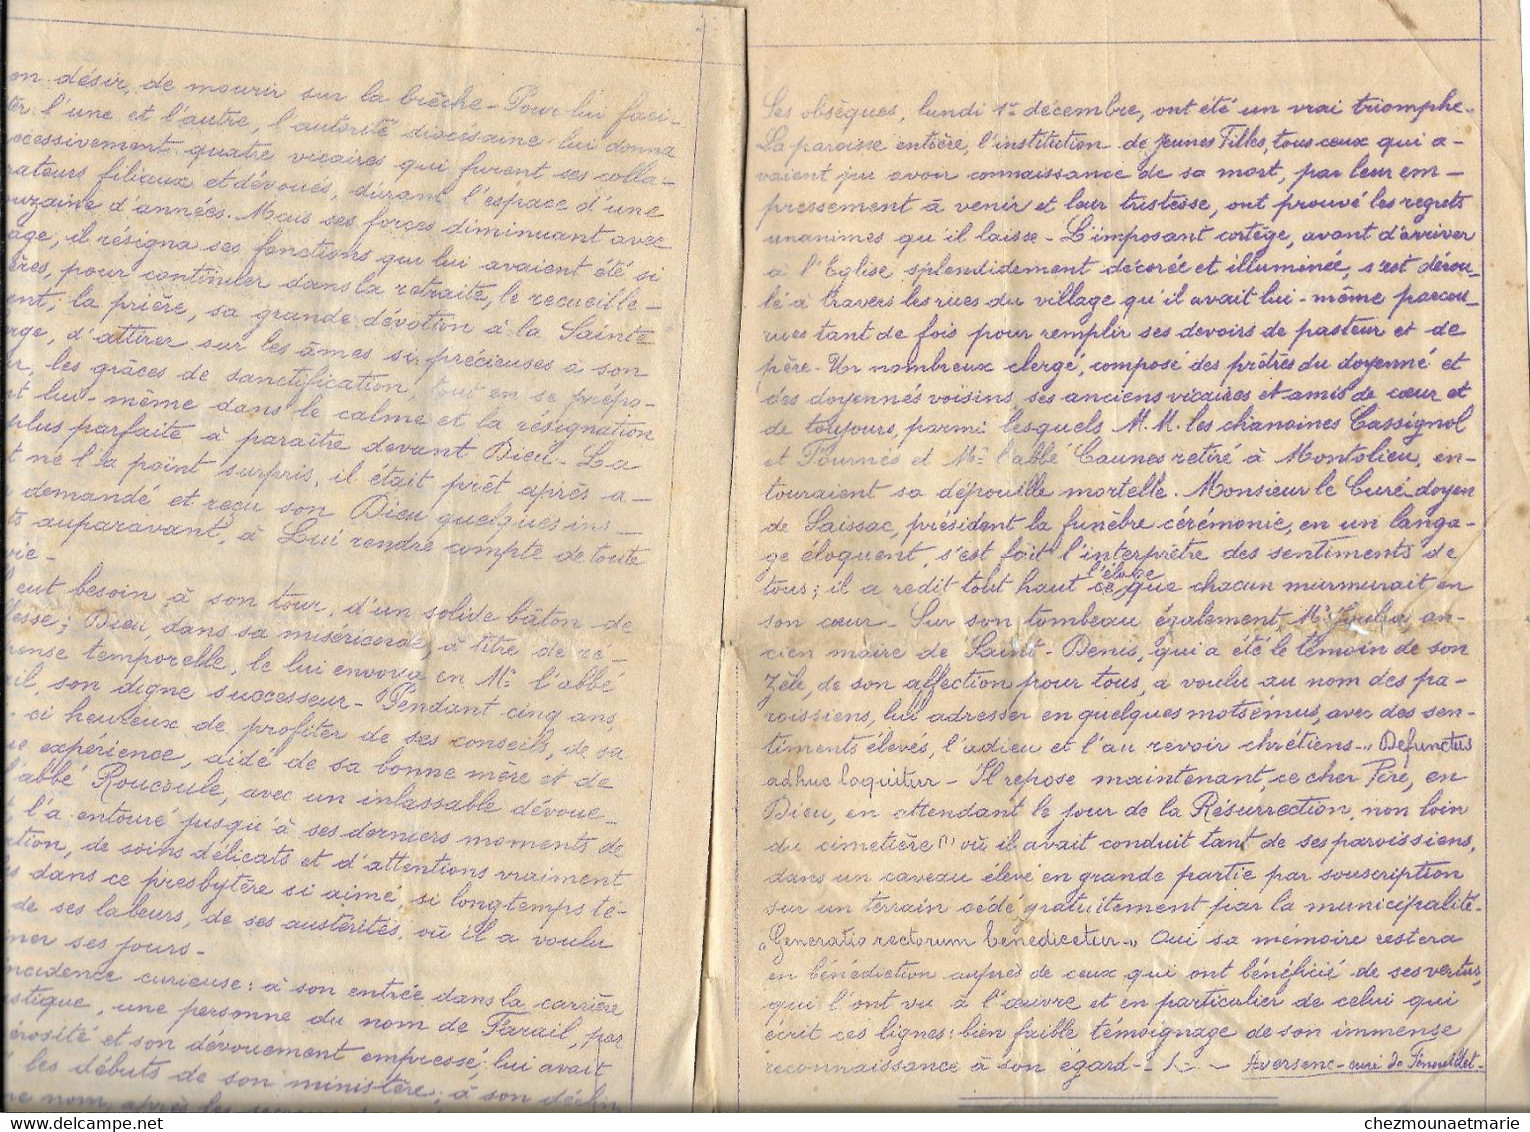 on désir, de mourir sur la brêche - Pour lui faci-
ter l'une et l'autre, l'autorité diocésaine lui donna
ccessivement quatre vicaires qui furent ses colla-
rateurs filiaux et dévoués, durant l'espace d'une
ouzaine d'années. Mais ses forces diminuant avec
age, il résigna ses fonctions qui lui avaient été si
ères, pour continuer dans la retraite, le recueille-
ent, la prière, sa grande dévotion à la Sainte
erge, d'attirer sur les âmes si précieuses à son
ur, les grâces de sanctification, tout en se prépa-
nt lui-même dans le calme et la résignation
plus parfaite à paraître devant Dieu - La
t ne l'a point surpris, il était prêt après a-
demandé et reçu son Dieu quelques ins
ts auparavant, à Lui rendre compte de toute
vie -
eut besoin à son tour, d'un solide bâton de
llesse; Dieu, dans sa miséricorde, à titre de ré-
pense temporelle, le lui envoya en Mr l'abbé
il, son digne successeur - Pendant cinq ans,
- ci heureux de profiter de ses conseils, de sa
ue expérience, aidé de sa bonne mère et de
l'abbé Roucoule, avec un inlassable dévoue-
t, l'a entouré jusqu'à ses derniers moments de
ation, de soins délicats et d'attentions vraiment
es dans ce presbytère si aimé, si longtemps té-
de ses labeurs, de ses austérités, où il a voulu
ner ses jours -
ncidence curieuse: à son entrée dans la carrière
astique, une personne du nom de Farail, par
érosité et son dévouement empressé, lui avait
les débuts de son ministère; à son déclin
me nom, après les
Ses obsèques, lundi 1er décembre, ont été un vrai triomphe.
La paroisse entière, l'institution de jeunes Filles, tous ceux qui a-
vaient pu avoir connaissance de sa mort, par leur em-
pressement à venir et leur tristesse, ont prouvé les regrets
unanimes qu'il laisse - L'imposant cortège, avant d'arriver
à l'Eglise splendidement décorée et illuminée, s'est dérou-
lé à travers les rues du village qu'il avait lui-même parcou-
rues tant de fois pour remplir ses devoirs de pasteur et de
père - Un nombreux clergé, composé des prêtres du doyenné et
des doyennés voisins, ses anciens vicaires et amis de cœur et
de toujours, parmi lesquels M.M. les chanoines Cassignol
et Fournès et Mr l'abbé Caunes retiré à Montolieu, en-
touraient sa dépouille mortelle. Monsieur le Curé-doyen
de Saissac, présidant la funèbre cérémonie, en un langa-
ge éloquent, s'est fait l'interprète des sentiments de
tous; il a redit tout haut ce que chacun murmurait en
son cœur - Sur son tombeau également, Mr an-
cien maire de Saint-Denis, qui a été le témoin de son
zèle, de son affection pour tous, a voulu au nom des pa-
roissiens, lui adresser en quelques mots émus, avec des sen-
timents élevés, l'adieu et l'au revoir chrétiens - "Defunctus
adhuc loquitur - Il repose maintenant, ce cher Père, en
Dieu, en attendant le jour de la Résurrection, non loin
du cimetière (1) où il avait conduit tant de ses paroissiens,
dans un caveau élevé en grande partie par souscription
sur un terrain cédé gratuitement par la municipalité -
"Generatio rectorum benedicetur -" Oui sa mémoire restera
en bénédiction auprès de ceux qui ont bénéficié de ses vertus,
qui l'ont vu à l'œuvre et en particulier de celui qui
écrit ces lignes: bien faible témoignage de son immense
reconnaissance à son égard -
Aversenc - curé de
chezmounaetmarie